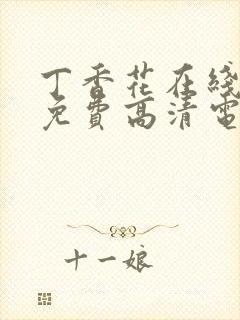 丁香花在綫
免費高清電
十一娘